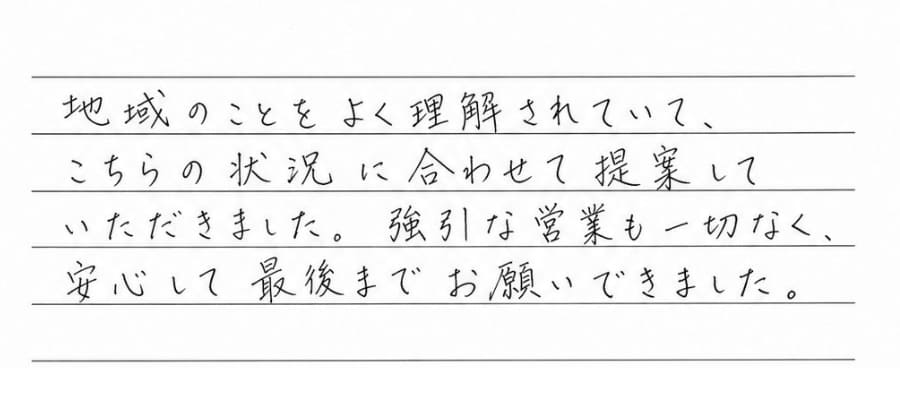 地域のことをよく理解されていて、
こちらの状況に合わせて提案して
いただきました。強引な営業も一切なく、
安心して最後までお願いできました。